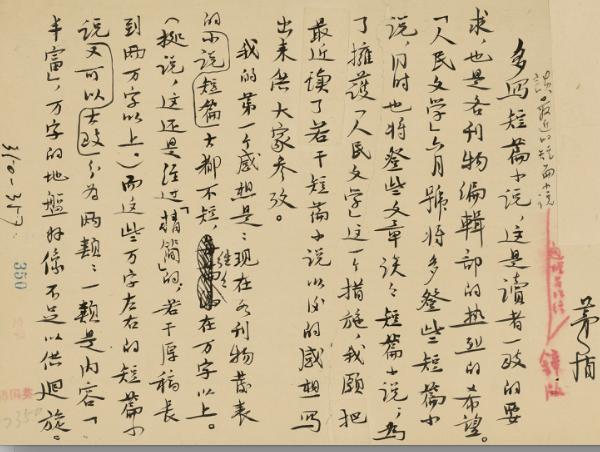 茅盾
談最近的短篇小说
锌版
多写短篇小说，這是讀者一致的要
求，也是各刊物编輯部的热烈的希望。
「人民文学」六月號将多登些短篇小
说，同时也将登些文章谈谈短篇小说；为
了擁護「人民文学」这一个措施，我願把
最近读了若干短篇小说以后的感想写
出来供大家参攷。
我的第一个感想是：现在各刊物發表
的小说短篇大都不短，在万字以上。
（据说，这还是经过「精简」的，若干原稿长
到两万字以上。）而这些万字左右的短篇小
说又可以大致分为两類：一類是内容「
丰富」，万字的地盤好像不足以供迴旋。
310-357.
350